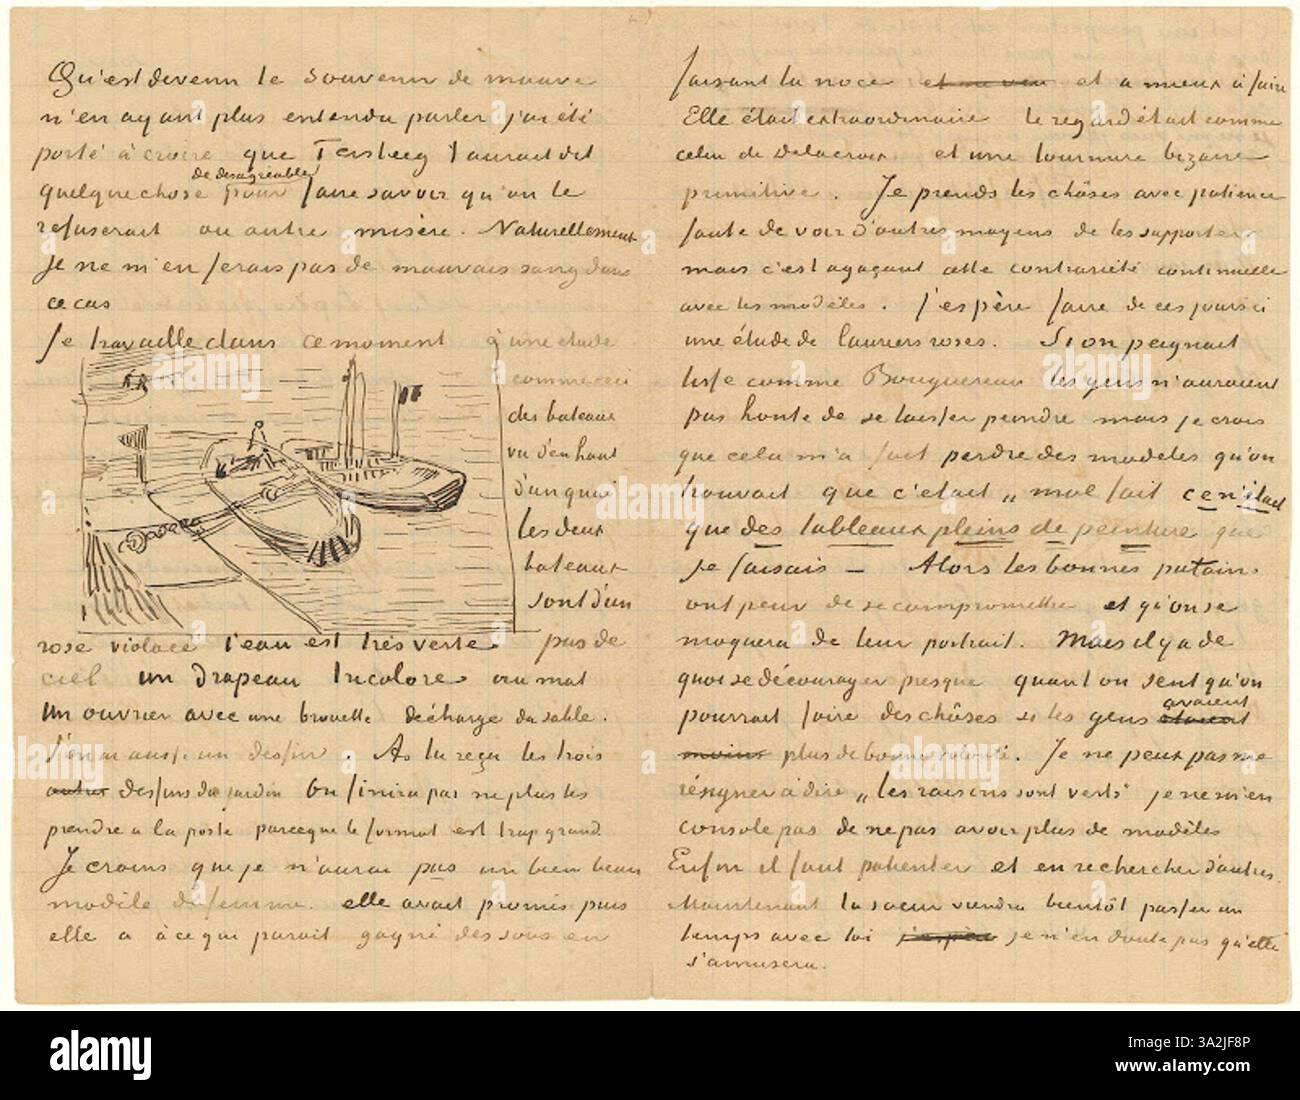 Qu'est devenu le souvenir de mauve
n'en ayant plus entendu parler j'ai été
porté à croire que Tersteeg t'aurait dit
de désagréable
quelque chose pour faire savoir qu'on le
refuserait ou autre misère. Naturellement
je ne m'en ferais pas de mauvais sang dans
ce cas
Je travaille dans ce moment à une etude
comme ceci
des bateaux
vu d'en haut
d'un quai
les deux
bateaux
sont d'un
rose violacé l'eau est très verte pas de
ciel un drapeau tricolore au mat
un ouvrier avec une brouette décharge du sable.
J'en ai aussi un dessin. As tu reçu les trois
autres dessins du jardin On finira par ne plus les
prendre a la poste parceque le format est trop grand.
Je crains que je n'aurai pas un bien beau
modèle de femme. elle avait promis puis
elle a à ce qui parait gagné des sous en
faisant la noce et a mieux à faire
Elle était extraordinaire le regard était comme
celui de Delacroix et une tournure bizarre
primitive. Je prends les chôses avec patience
faute de voir d'autres moyens de les supporter
mais c'est agaçant cette contrariété continuelle
avec les modèles. J'espère faire de ces jours ci
une étude de lauriers roses. Si on peignait
lisse comme Bouguereau les gens n'auraient
pas honte de se laisser peindre mais je crois
que cela m'a fait perdre des modeles qu'on
trouvait que c'etait „mal fait ce n'était
que des tableaux pleins de peinture que
je faisais — Alors les bonnes putains
ont peur de se compromettre et qu'on se
moquera de leur portrait. Mais il y a de
quoi se décourager presque quand on sent qu'on
avaient
pourrait faire des chôses si les gens étaient
moins plus de bonne volonté. Je ne peux pas me
résigner à dire „les raisins sont verts" je ne m'en
console pas de ne pas avoir plus de modèles
Enfin il faut patienter et en rechercher d'autres.
Maintenant la soeur viendra bientôt passer un
temps avec toi j'espère je n'en doute pas qu'elle
s'amusera.
alamy
Image ID: 3A2JF8P
www.alamy.com